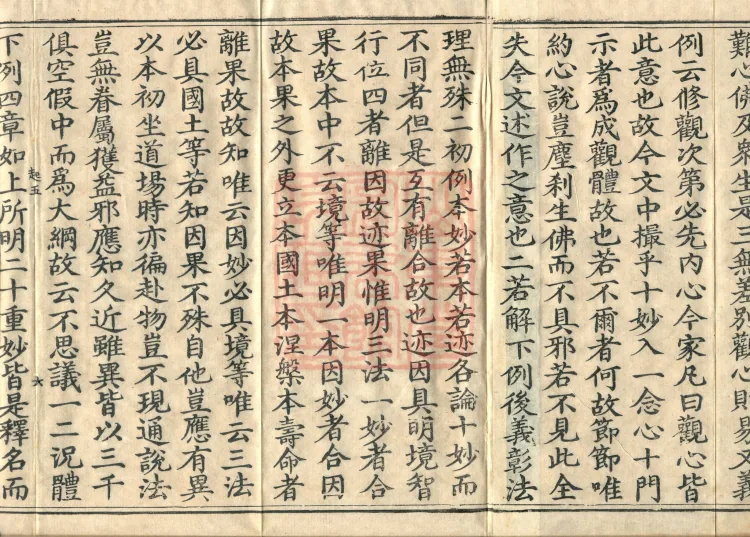 難心佛及衆生是三無差別觀心則易文義
例云修觀次第必先內心今家凡曰觀心皆
此意也故今文中撮乎十妙入一念心十門
示者爲成觀體故也若不爾者何故節節唯
約心說豈塵刹生佛而不具邪若不見此全
失今文述作之意也二若解下例後義彰法
理無殊二初例本妙若本若迹各論十妙而
不同者但是互有離合故也迹因具明境智
行位四者離因故迹果惟明三法一妙者合
果故本中不云境等唯明一本因妙者合因
故本果之外更立本國土本涅槃本壽命者
離果故故知唯云因妙必具境等唯云三法
必具國土等若知因果不殊自他豈應有異
以本初坐道場時亦徧赴物豈不現通說法
豈無眷屬獲益邪應知久近雖異皆以三千
俱空假中而爲大綱故云不思議一二況體
起五 六
下例四章如上所明二十重妙皆是釋名而